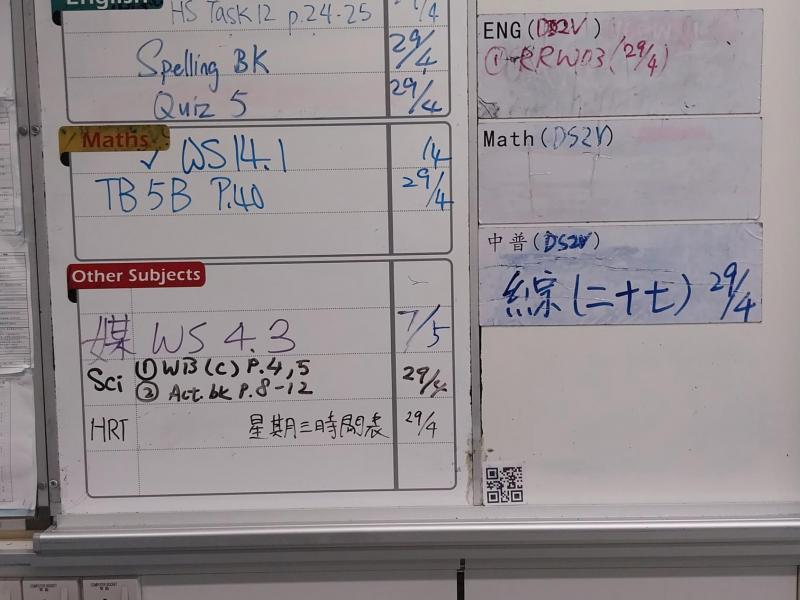 English
HS Task 12 p.24-25 /4
Spelling BK 29/4
Quiz 5 29/4
Maths
✓ WS 14.1 /4
TB 5B P.40 29/4
Other Subjects
媒 WS 4.3 7/5
Sci ① WB (C) P.4,5 29/4
② Act.bk P.8-12
HRT 星期三時間表 29/4
ENG(DS2V)
① RRW03 (29/4)
Math(DS2V)
中普(DS2V)
綜(二十七) 29/4
COMPUTER SOCKET
COMPUTER SOCKET